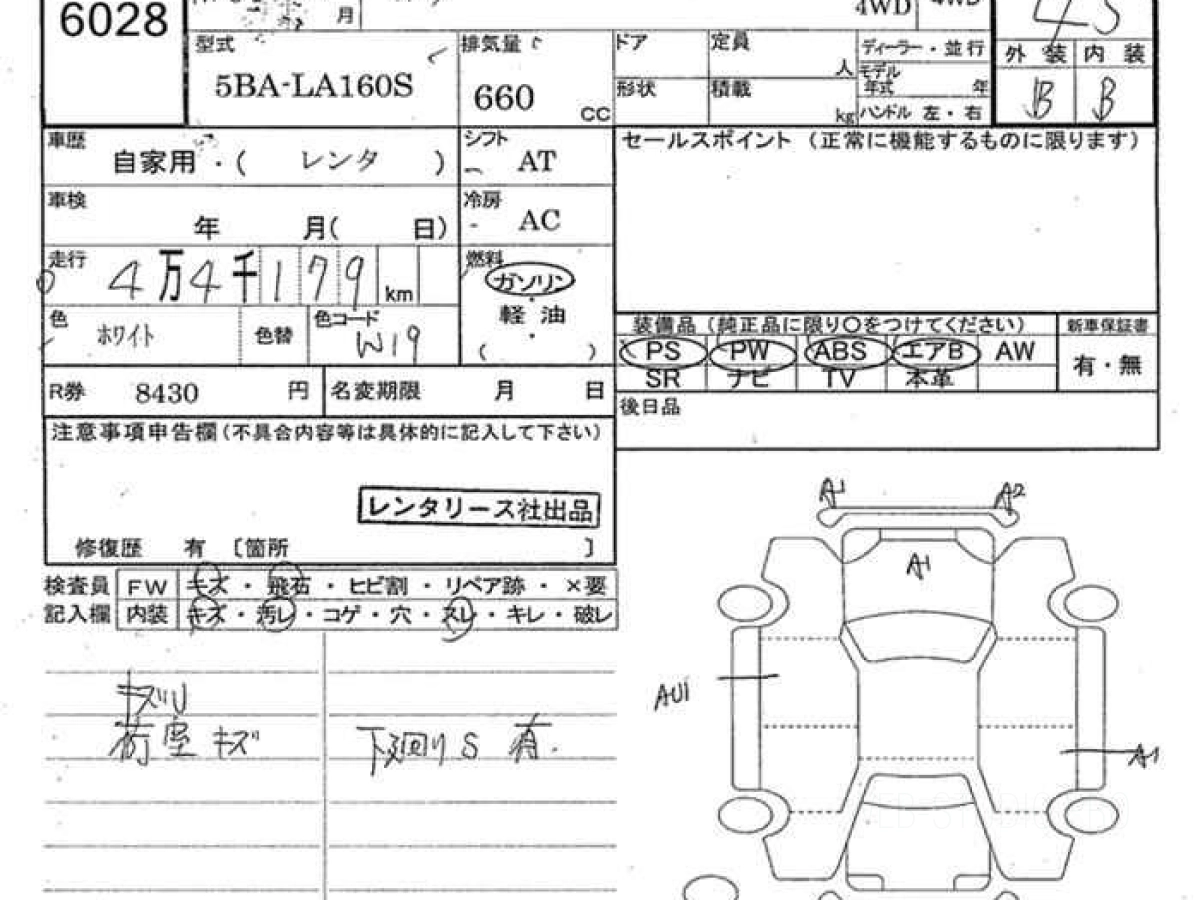 6028
月
4WD
型式
5BA-LA160S
排気量
660
CC
ドア
定員
人
形状
積載
kg
ディーラー・並行
モデル年式
年
ハンドル 左・右
外装 内装
B B
車歴
自家用・( レンタ )
シフト
AT
セールスポイント (正常に機能するものに限ります)
車検
年 月( 日)
冷房
AC
走行
4万4千179 km
燃料
ガソリン
軽・油
( ・ )
色
ホワイト
色替
色コード
W19
装備品(純正品に限り○をつけてください)
新車保証書
PS PW ABS エアB AW
有・無
SR ナビ TV 本革
R券 8430 円
名変期限 月 日
後日品
注意事項申告欄(不具合内容等は具体的に記入して下さい)
レンタリース社出品
修復歴 有 〔箇所 〕
検査員
記入欄
FW キズ・飛石・ヒビ割・リペア跡・×要
内装 キズ・汚レ・コゲ・穴・スレ・キレ・破レ
キズU
荷室キズ
下廻りS 有.
A1
A2
A1
AU1
A1